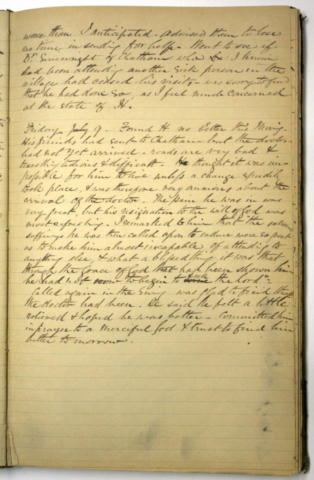 worse than I anticipated - advised them to lose
no time in sending for help. Went to see if
Dr. of Chatham who I knew
had been attending another Sick person in the
village had delayed his visit - was sorry to find
that he had done so, as I feel much concerned
at the state of H.
Friday July 9 - Found H. no better this Morng.
His friends had sent to Chatham but the doctor
had not yet arrived - roads are very bad &
travelling tedious & difficult. He thought it was im-
possible for him to live unless a change speedily
took place, & was therefore very anxious about the
arrival of the doctor. The pain he was in was
very great, but his resignation to the will of God was
most refreshing. I remarked to him that the
sufferings he was then called upon to endure were such
as to make him almost incapable of attending to
anything else, & what a blessed thing it was that
through the grace of God that had been shown him
he had not to begin to the Lord -
Called again in the Eveng was glad to find that
the doctor had been. He said he felt a little
relieved & hoped he was better - Committed him
in prayer to a Merciful God & trust to find him
better tomorrow.